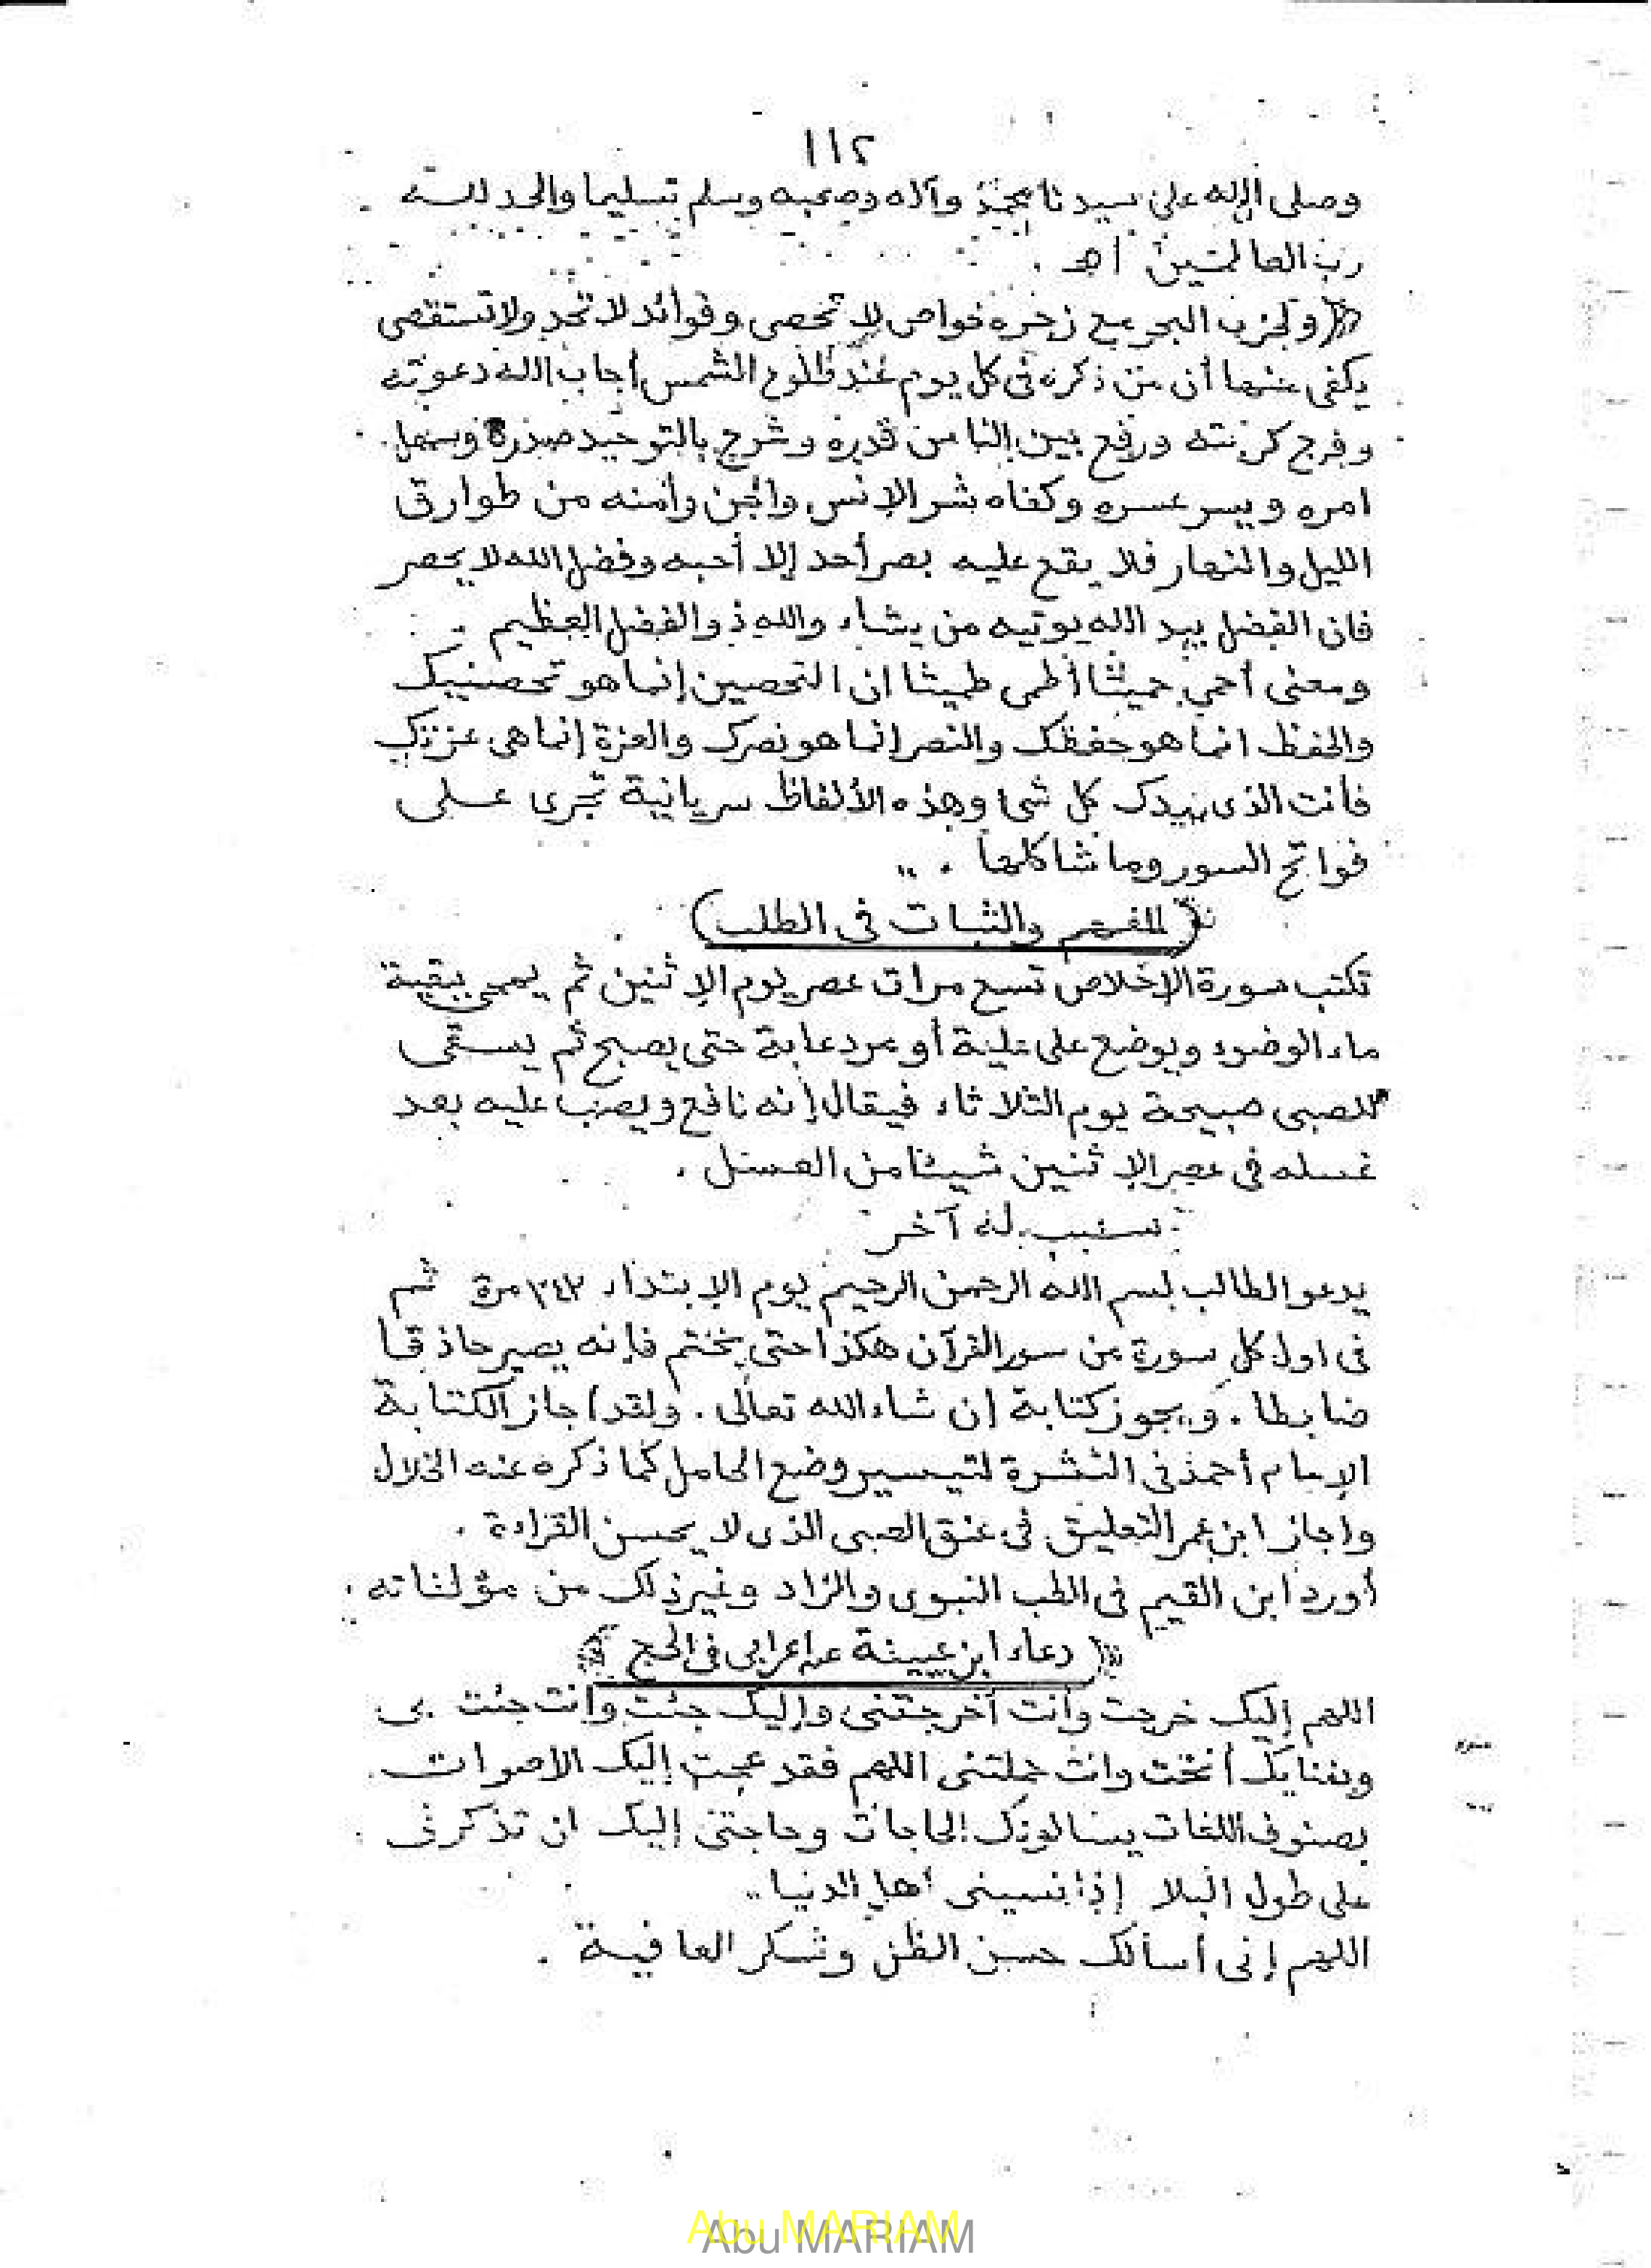 ١١٢
وصلى الله على سيدنا محمد وآله وصحبه وسلم تسليما والحمد لله
رب العالمين اهـ .
(ولحزب البحر مع زجره خواص لا تحصى وفوائد لا تحد ولا تستقصى
يكفى منها أن من ذكره فى كل يوم عند طلوع الشمس أجاب الله دعوته
وفرج كربته ورفع بين الناس قدره وشرح بالتوحيد صدره وسهل
امره ويسر عسره وكفاه شر الإنس والجن وأمنه من طوارق
الليل والنهار فلا يقع عليه بصر أحد إلا أحبه وفضل الله لا يحصر
فان الفضل بيد الله يوتيه من يشاء والله ذو الفضل العظيم .
ومعنى أحمى حميثا أطمى طميثا ان التحصين إنما هو تحصنيك
والحفظ انما هو حفظك والنصر إنما هو نصرك والعزة إنما هى عزتك
فأنت الذى بيدك كل شئ وهذه الألفاظ سريانية تجرى على
فواتح السور وما شاكلها . ..
(للفهم والثبات فى الطلب)
تكتب سورة الإخلاص تسع مرات عصر يوم الإثنين ثم يمحى ببقية
ماء الوضوء ويوضع على أو حتى يصبح ثم يسقى
للصبى صبيحة يوم الثلاثاء فيقال إنه نافع ويصب عليه بعد
غسله فى عصر الإثنين شيئا من العسل .
سبب له آخر
يدعو الطالب بسم الله الرحمن الرحيم يوم الإبتداء مرة ثم
فى اول كل سورة من سور القرآن هكذا حتى يختم فإنه يصير حاذقا
ضابطا . ويجوز كتابة إن شاء الله تعالى . ولقد اجاز الكتابة
الإمام أحمد فى النشرة لتيسير وضع الحامل كما ذكره عنه الخلال
واجاز ابن عمر التعليق فى عنق الصبى الذى لا يحسن القراءة .
أورد ابن القيم فى الطب النبوى والزاد وغير ذلك من مؤلفاته .
( دعاء ابن عيينة عن اعرابى فى الحج )
اللهم إليك خرجت وأنت أخرجتنى وإليك جئت وأنت جئت بى
وبفنائك أنخت وانت حملتنى اللهم فقد عجت إليك الاصوات
بصنوف اللغات يسالونك الحاجات وحاجتى إليك ان تذكرنى
على طول البلا إذا نسينى أهل الدنيا ..
اللهم إنى أسألك حسن الظن وشكر العافية .
Abu MARIAM